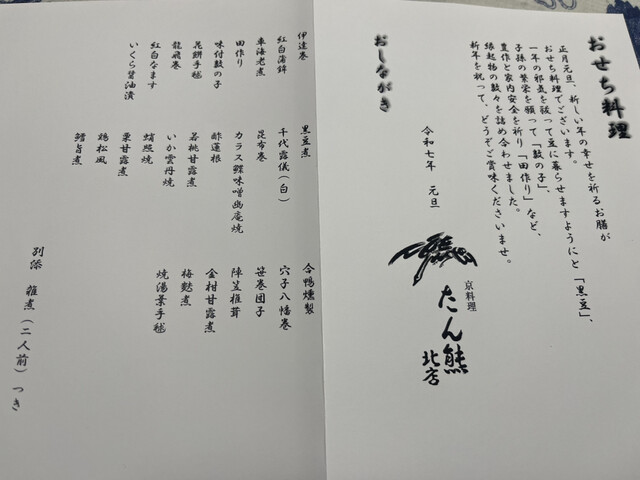 おせち料理
正月元旦、新しい年の幸せを祈るお膳が
おせち料理でございます。
一年の邪気を祓って豆に暮らせますようにと「黒豆」、
子孫の繁栄を願って「数の子」、
豊作と家内安全を祈り「田作り」など、
縁起物の数々を詰め合わせました。
新年を祝って、どうぞご賞味くださいませ。
令和七年 元旦
京料理
たん熊
北店
おしながき
伊達巻
紅白蒲鉾
車海老煮
田作り
味付数の子
花餅手毬
龍飛巻
紅白なます
いくら醤油漬
黒豆煮
千代露儀(白)
昆布巻
カラス鰈味噌幽庵焼
酢蓮根
若桃甘露煮
いか雲丹焼
蛸照焼
栗甘露煮
鶏松風
鱈旨煮
合鴨燻製
穴子八幡巻
笹巻団子
陣笠椎茸
金柑甘露煮
梅麩煮
焼湯葉手毬
別添 雑煮(二人前)つき